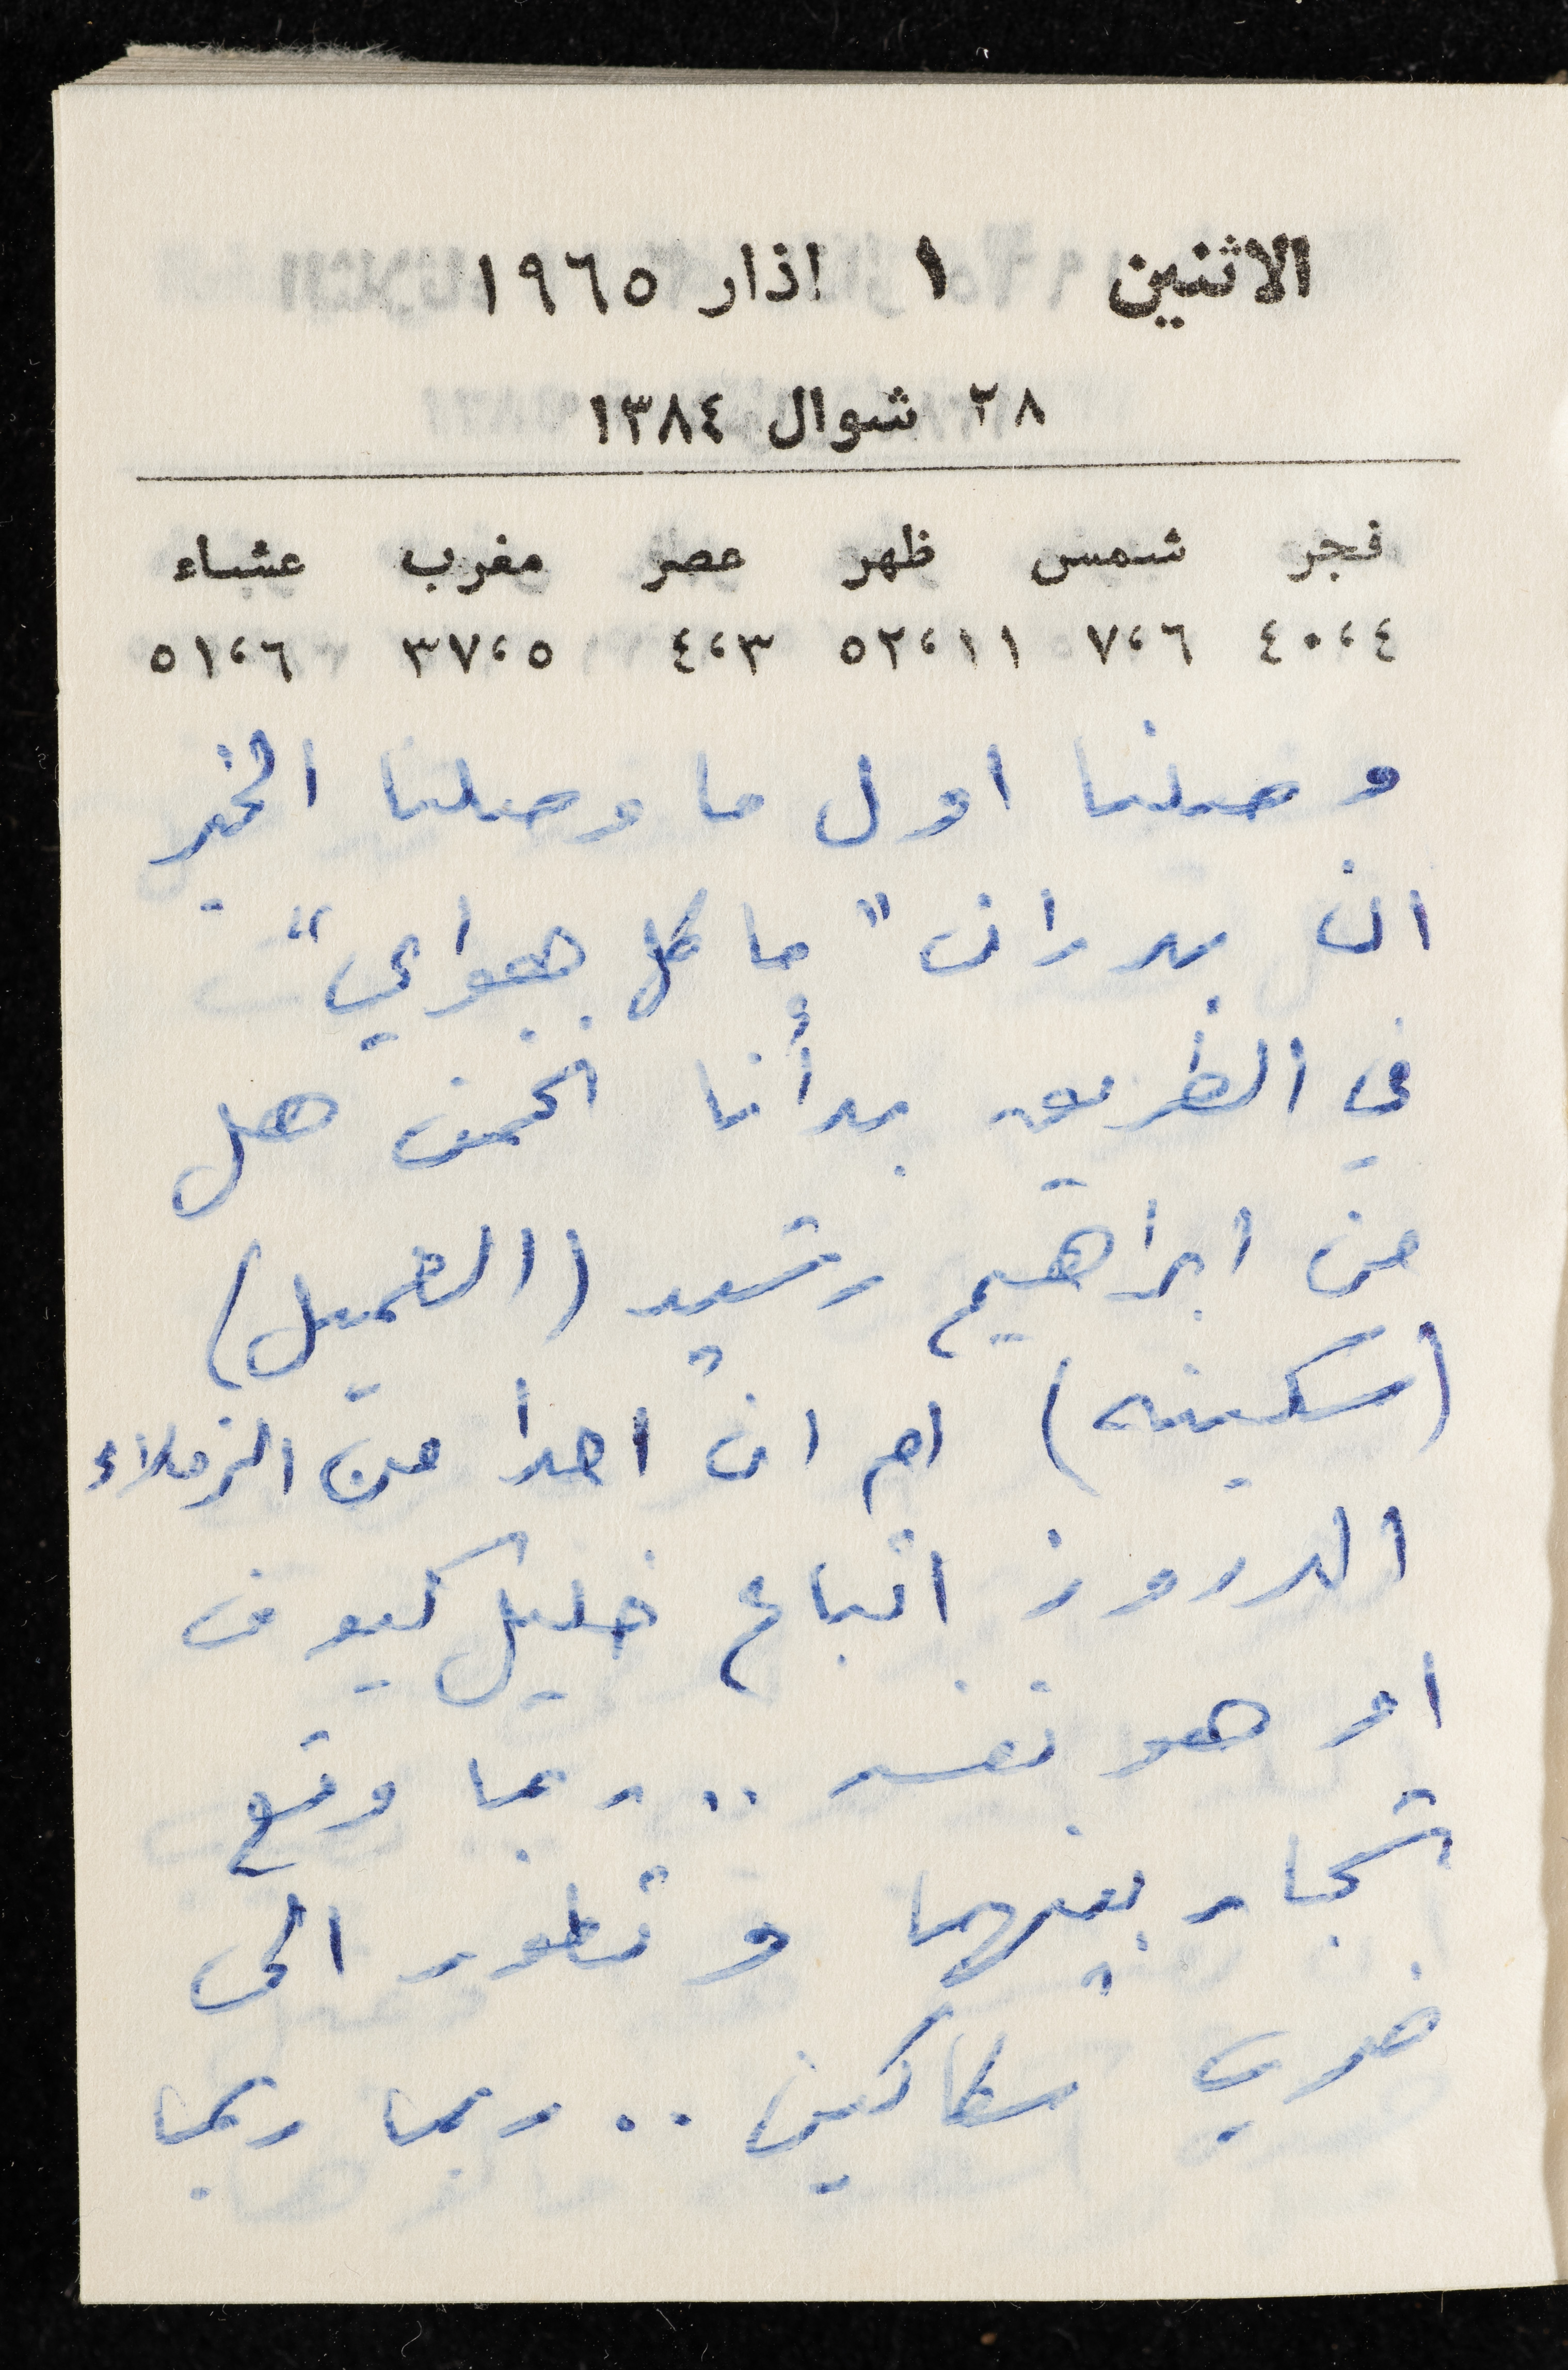 الاثنين ١ اذار ١٩٦٥
٢٨ شوال ١٣٨٤
فجر شمس ظهر عصر مغرب عشاء
٤،٤٠ ٦،٧ ١١،٥٢ ٣،٤ ٥،٣٧ ٦،٥١
وصلنا اول ما وصلنا الخبر
ان بدران "ماكل جوابي"
في الطريق بدأنا نخمن هل
من ابراهيم رشيد (العميل)
(سكينه) ام ان احدا من الزملاء
الدروز اتباع خليل كيوف
او هو نفسه .. ربما وقع
شجار بينهما وتطور الى
ضرب سكاكين .. ربما ربما